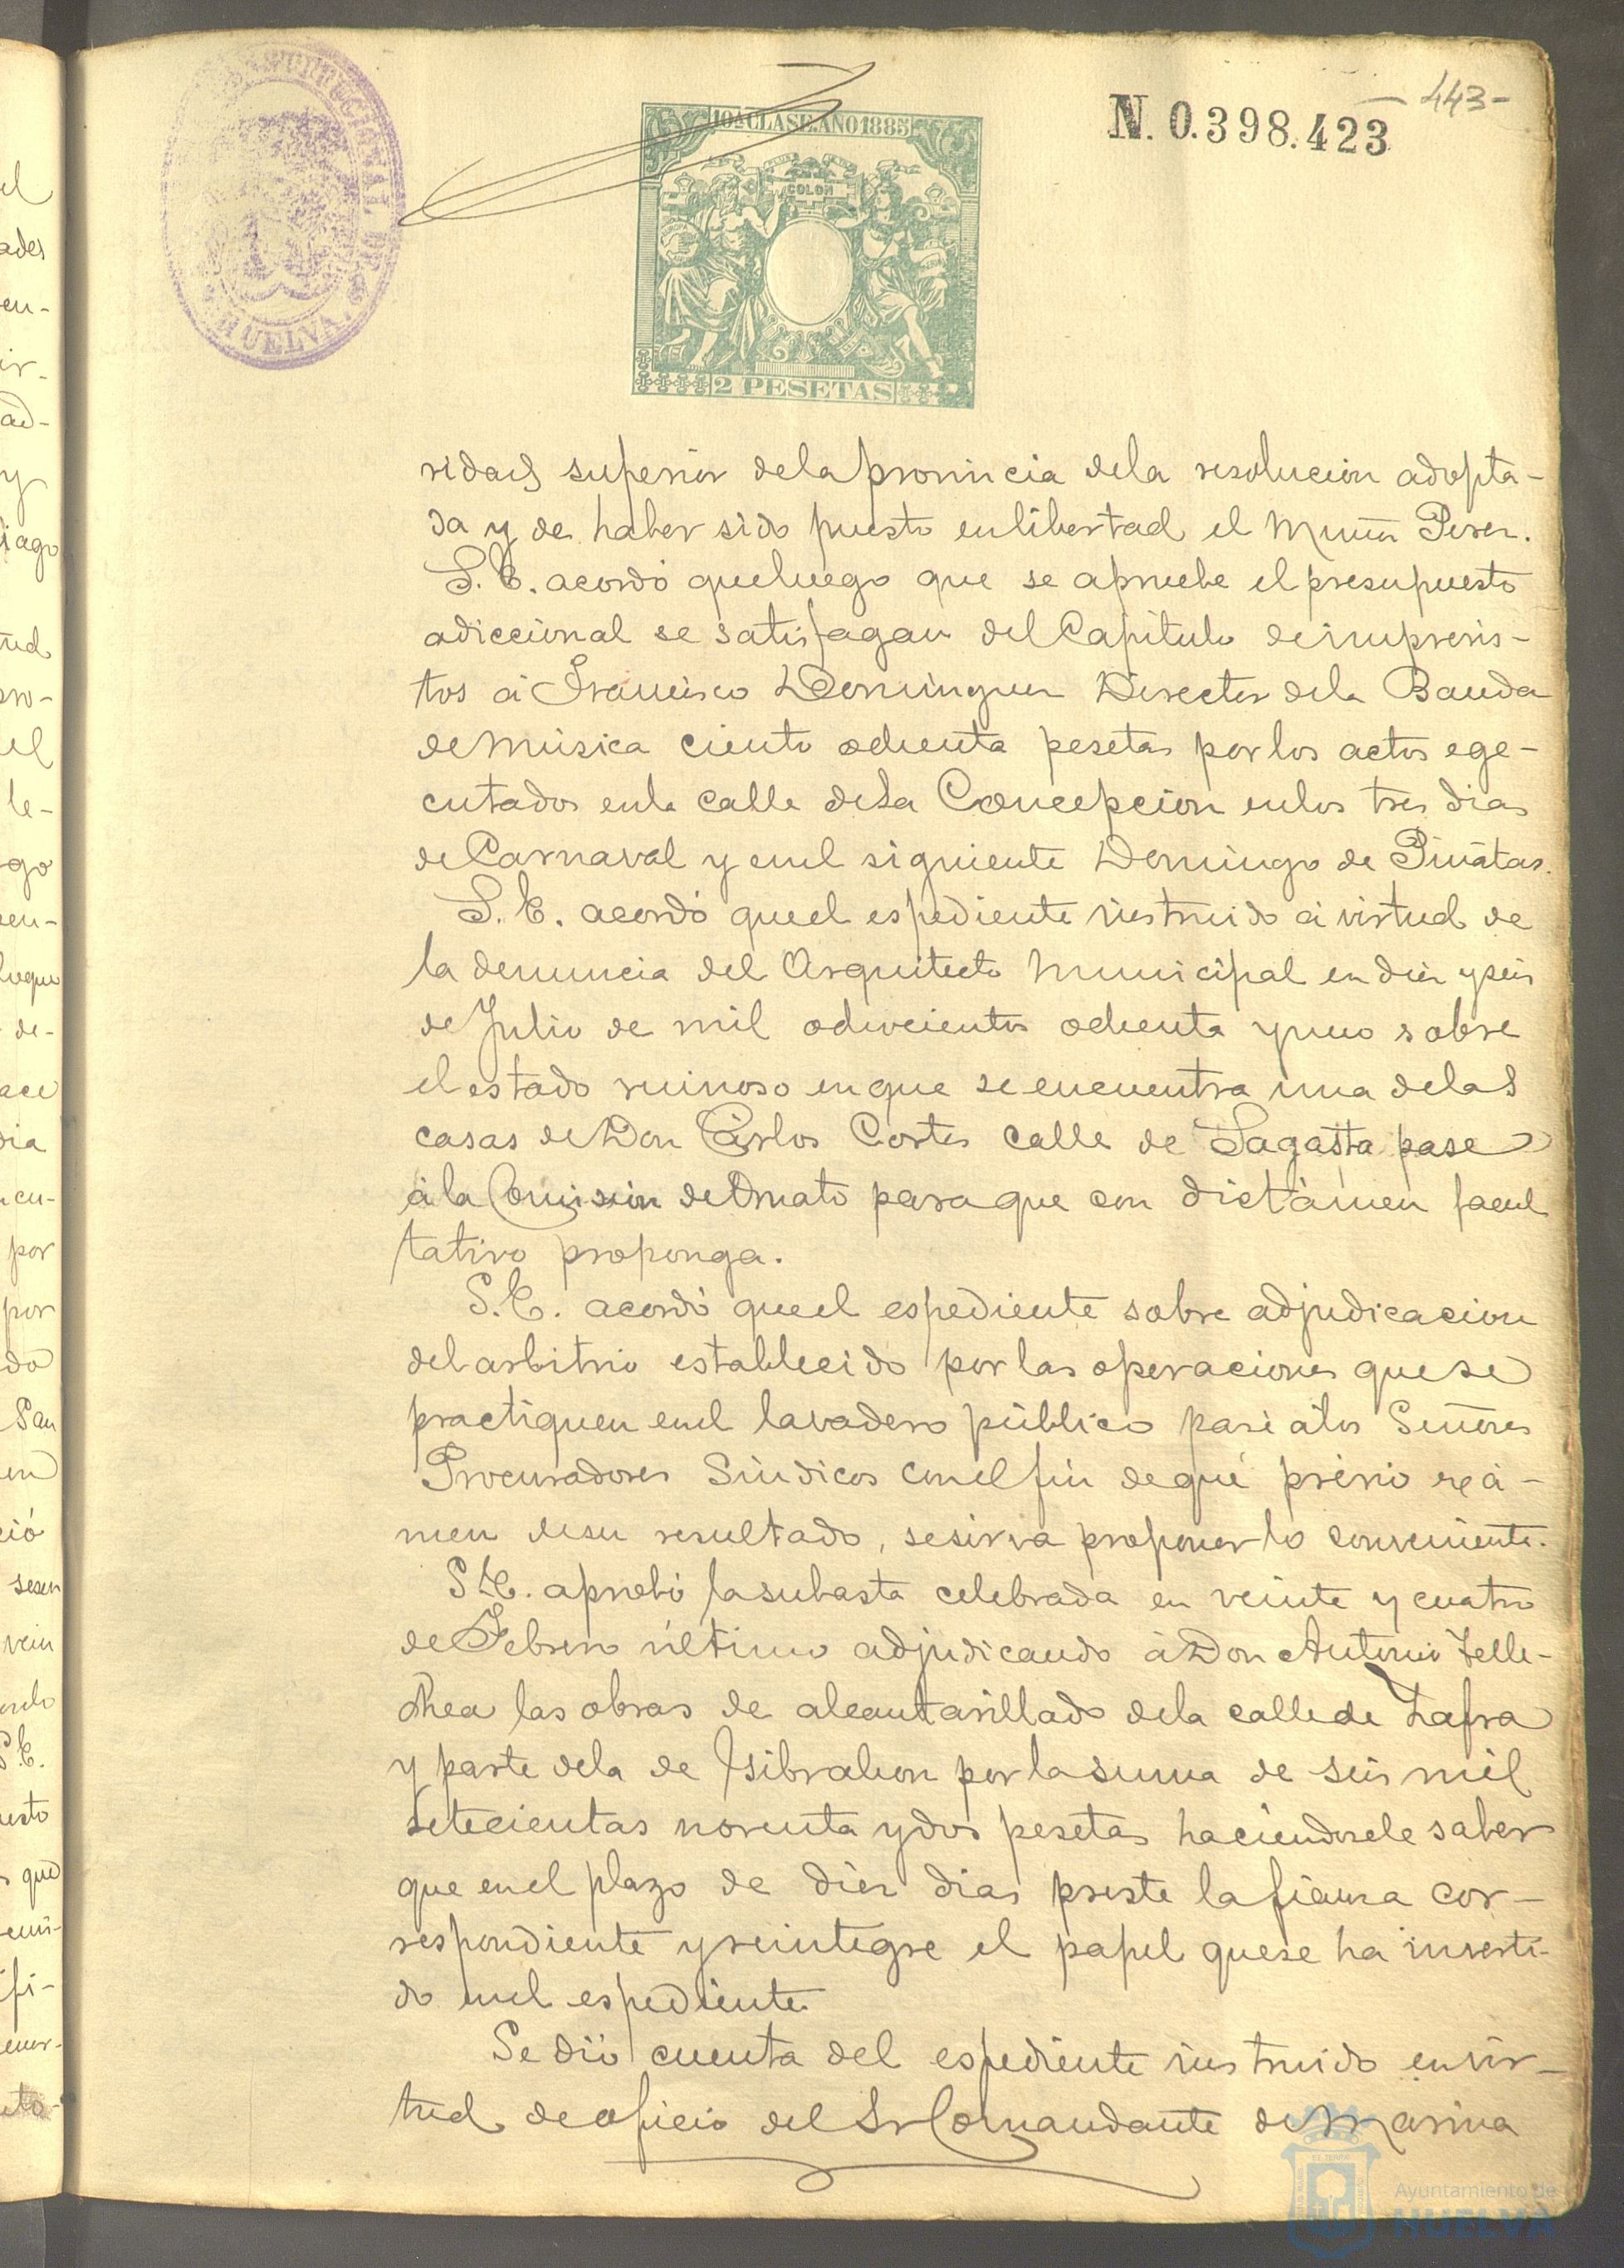 443-
N. 0.398.423
10ª CLASE. AÑO 1885
COLON
2 PESETAS
CONSTITUCIONAL DE
HUELVA
ridad superior dela provincia dela resolucion adopta-
da y de haber sido puesto en libertad el Muñoz Perez.
S. E. acordó que luego que se apruebe el presupuesto
adiccional se satisfagan del Capitulo de imprevis-
tos á Francisco Dominguez Director dela Banda
de Música ciento ochenta pesetas por los actos ege-
cutados enla calle dela Concepcion enlos tres dias
de Carnaval y enel siguiente Domingo de Piñatas.
S. E. acordó queel espediente instruido á virtud de
la denuncia del Arquitecto Municipal en diez y seis
de Julio de mil ochocientos ochenta y uno sobre
el estado ruinoso en que se encuentra una delas
casas de Don Cárlos Cortes calle de Sagasta pase
á la Comision de Ornato para que con dictámen facul
tativo proponga.
S. E. acordó queel espediente sobre adjudicacion
del arbitrio establecido por las operaciones que se
practiquen enel lavadero público pase álos Señores
Procuradores Síndicos conel fin de que prévio exá-
men desu resultado, se sirva proponer lo conveniente.
S. E. aprobó la subasta celebrada en veinte y cuatro
de Febrero último adjudicando á Don Antonio Telle-
chea las obras de alcantarillado dela calle de Zafra
y parte dela de Gibraleon por la suma de seis mil
setecientas noventa y dos pesetas haciendosele saber
que en el plazo de diez dias preste la fianza cor-
respondiente y reintegre el papel que se ha inverti-
do enel espediente
Se dió cuenta del espediente instruido en vir-
tud de oficio del Sr Comandante de Marina
Ayuntamiento de
HUELVA